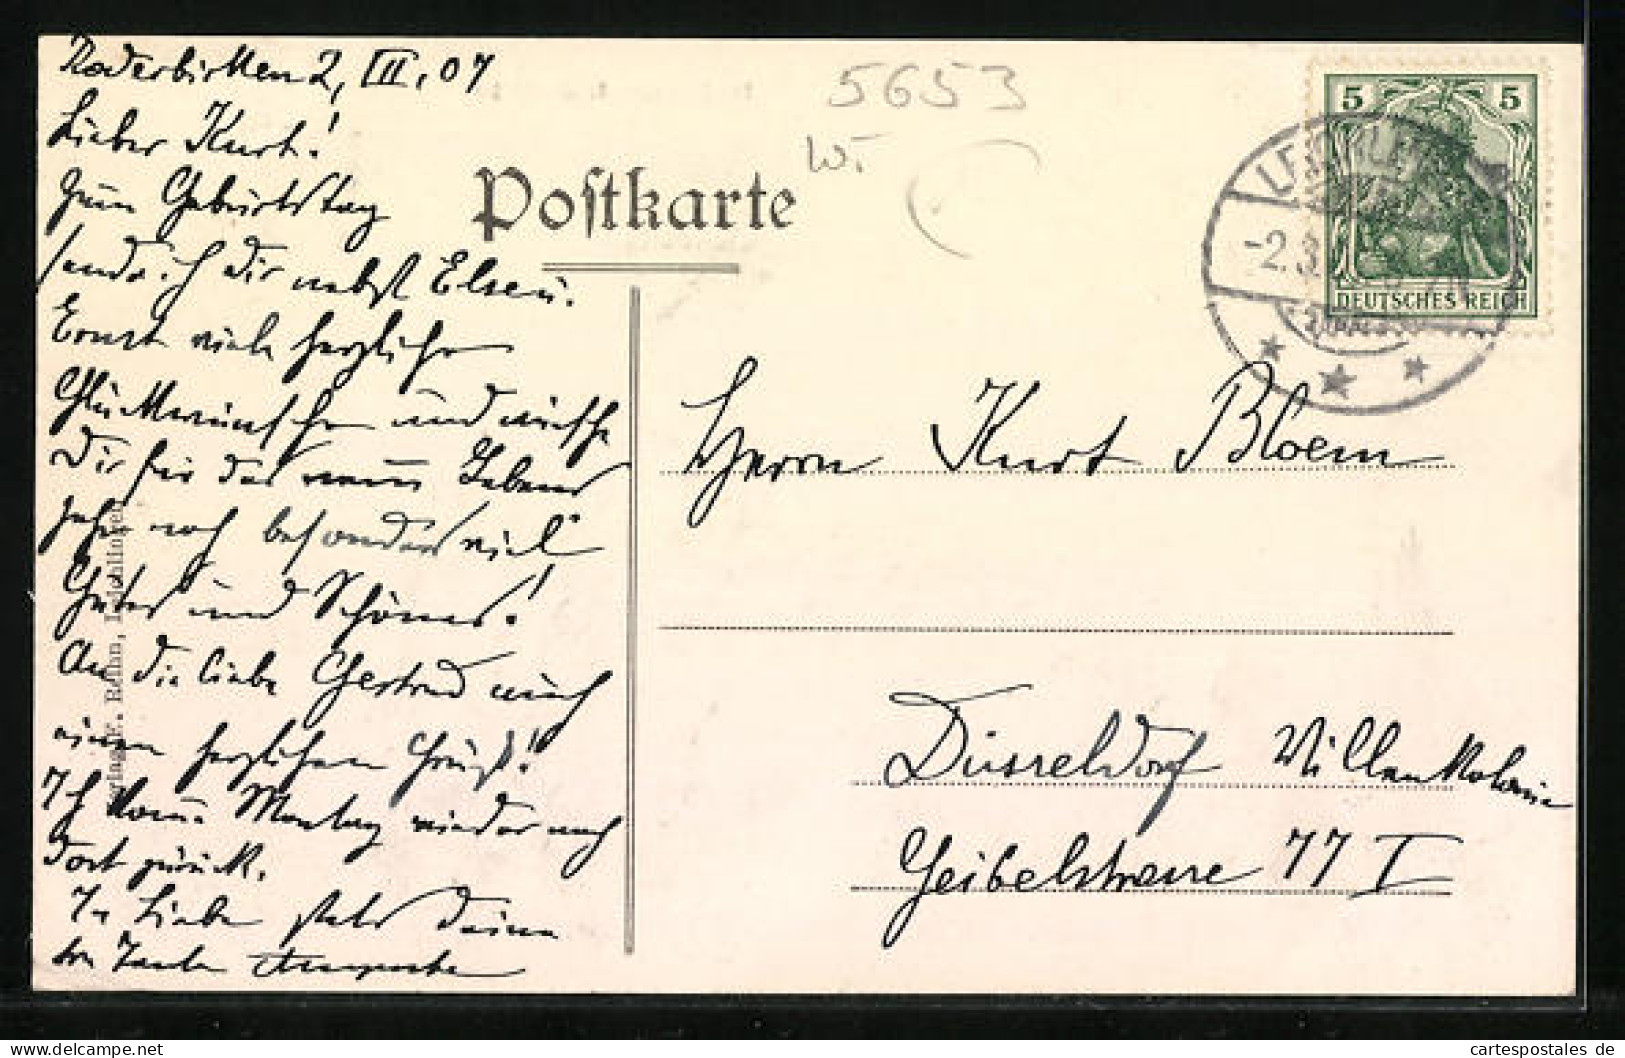 Roderbirken 2, III. 07
Lieber Kurt!
Zum Geburtstag
send ich dir nebst Else u.
Ernst viele herzliche
Glückwünsche und wünsche
Dir für das neue Lebens
jahr noch besonders viel
Gutes und Schönes!
An die liebe Gertrud auch
einen herzlichen Gruß!
Ich komme Montag wieder nach
dort zurück.
In Liebe stets Deine
Tante
Postkarte
5653
W.
5 5
DEUTSCHES REICH
-2.3
Herrn Kurt Bloem
Düsseldorf Villenkolonie
Geibelstrasse 77 I
Verlag: F. Reihn, Leichlingen
cartespostales de